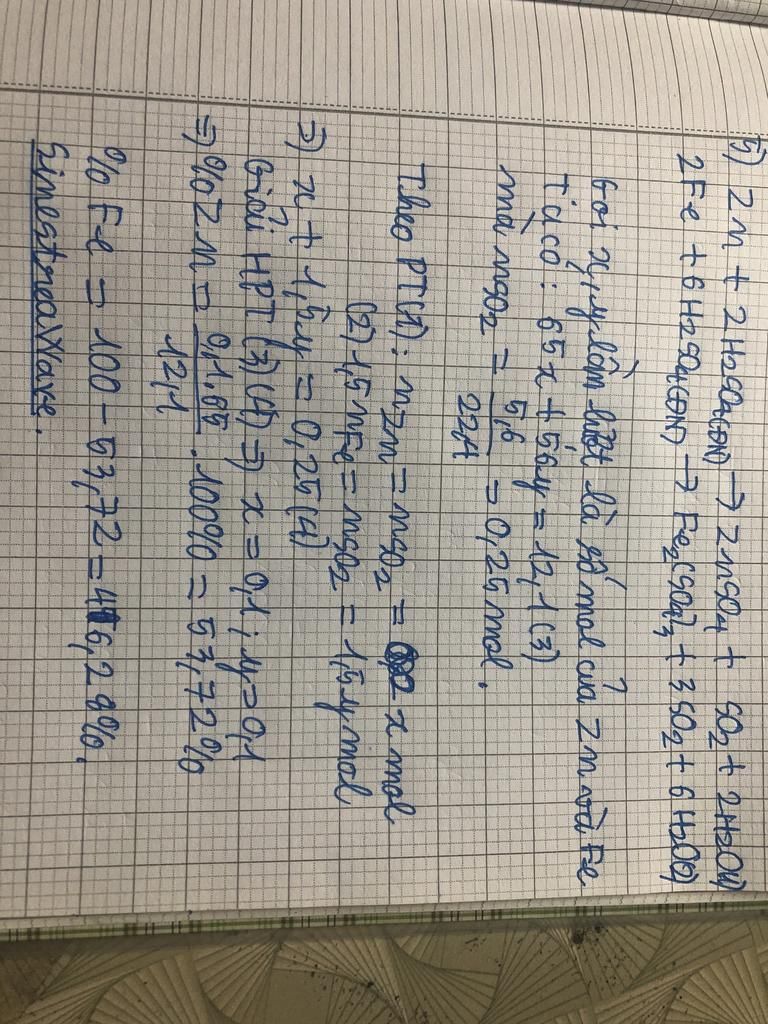 5) Zn + 2H2SO4(ĐN) → ZnSO4 + SO2 + 2H2O(1)
2Fe + 6H2SO4(ĐN) → Fe2(SO4)3 + 3SO2 + 6H2O(2)
Gọi x, y lần lượt là số mol của Zn và Fe
Ta có: 65x + 56y = 12,1 (3)
mà nSO2 = 5,6/22,4 = 0,25 mol.
Theo PT(1): nZn = nSO2 = x mol
(2) 1,5 nFe = nSO2 = 1,5y mol
=> x + 1,5y = 0,25 (4)
Giải HPT (3)(4) => x = 0,1; y = 0,1
=> % Zn = 0,1.65/12,1 . 100% = 53,72%
% Fe = 100 - 53,72 = 46,28%.